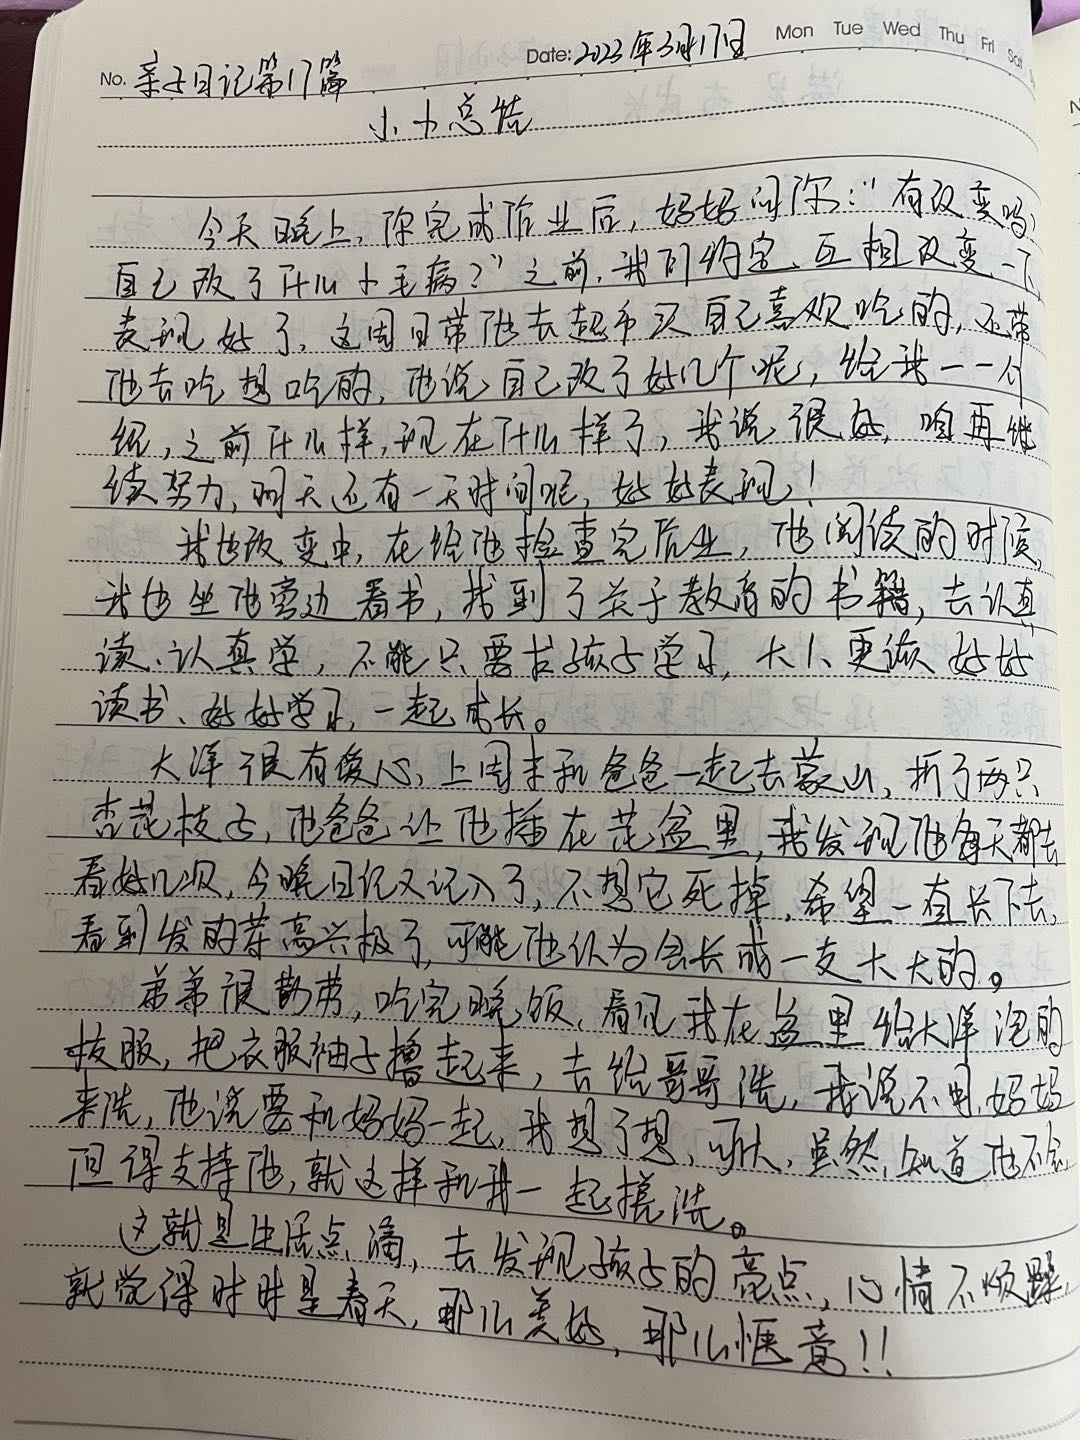 Mon Tue Wed Thu Fri Sat
No. 亲子日记第17篇 Date: 2023年3月17日
小小总结
今天晚上,你完成作业后,妈妈问你:“有改变吗,
自己改了什么小毛病?”之前,我们约定、互相改变一下
表现好了,这周日带他去超市买自己喜欢吃的,还带
他去吃想吃的,他说自己改了好几个呢,给我一一介
绍,之前什么样,现在什么样了,我说很好,咱再继
续努力,明天还有一天时间呢,好好表现!
我也改变中,在给他检查完作业,他阅读的时候,
我也坐他旁边看书,找到了关于教育的书籍,去认真
读、认真学,不能只要求孩子学习,大人更该好好
读书、好好学习,一起成长。
大洋很有爱心,上周末和爸爸一起去蒙山,折了两只
杏花枝子,他爸爸让他插在花盆里,我发现他每天都去
看好几次,今晚日记又记入了,不想它死掉,希望一直长下去,
看到发的芽高兴极了,可能他认为会长成一支大大的。
弟弟很勤劳,吃完晚饭,看见我在盆里给大洋泡的
校服,把衣服袖子撸起来,去给哥哥洗,我说不用,妈妈
来洗,他说要和妈妈一起,我想了想,可以,虽然,知道他不会
但得支持他,就这样和我一起搓洗。
这就是生活点滴,去发现孩子的亮点,心情不烦躁,
就觉得时时是春天,那么美好,那么惬意!!